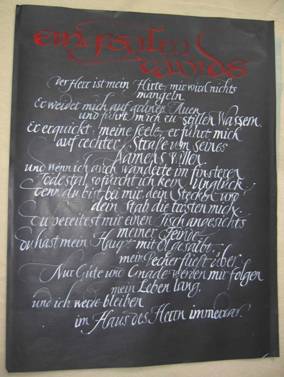 ein Psalm
Davids
Der Herr ist mein Hirte, mir wird nichts
mangeln.
Er weidet mich auf grünen Auen
und führt mich zu stillen Wassern.
Er erquickt meine Seele, er führt mich
auf rechter Straße um seines
Namens willen.
und wenn ich auch wanderte im finsteren
Todestal, so fürcht ich kein Unglück
denn du bist bei mir, dein Stecken und
dein Stab die trösten mich.
Du bereitest mir einen Tisch angesichts
meiner Feinde
du hast mein Haupt mit Öl gesalbt.
mein Becher fließt über.
Nur Güte und Gnade werden mir folgen
mein Leben lang.
und ich werde bleiben
im Haus des Herrn immerdar.